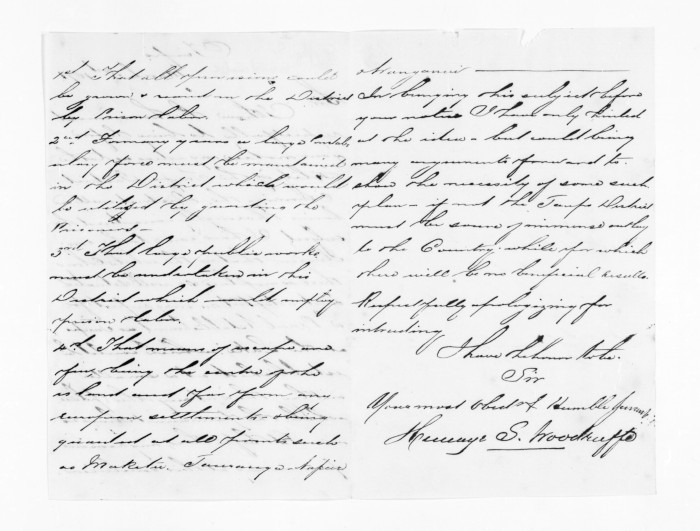 1st That all provisions could
be grown & raised in the District
by Prison labor.
2nd For many years a large Constab
ulary force must be maintained
in the District which would
be utilized by guarding the
Prisoners —
3rd That large public works
must be undertaken in this
District which would employ
prison labor.
4th That means of escape are
few, being the centre of the
island and far from any
european settlement & being
guarded at all points such
as Maketu. Tauranga Napier
Wanganui
In bringing this subject before
your notice I have only hinted
at the idea – but could bring
many arguments forward to
show the necessity of some such
plan – if not the Taupo District
must be some immense outlay
to the Country, while for which
there will be no beneficial results.
Respectfully apologizing for
intruding
I have the honor to be.
Sir
Your most Obedt & Humble Servant
S. Woodruffe